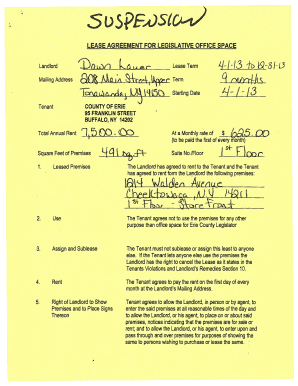 SUSPENSION
LEASE AGREEMENT FOR LEGISLATIVE OFFICE SPACE
Landlord Dawn Lauer Lease Term 4-1-13 to 12-31-13
Mailing Address 208 Main Street, Upper Term 9 months
Tonawanda, NY 14150 Starting Date 4-1-13
Tenant COUNTY OF ERIE
95 FRANKLIN STREET
BUFFALO, NY 14202
Total Annual Rent 7,500.00 At a Monthly rate of $ 625.00
(to be paid the first of every month)
Square Feet of Premises 491 sq ft Suite No./Floor 1st Floor
1. Leased Premises The Landlord has agreed to rent to the Tenant and the Tenant
has agreed to rent form the Landlord the following premises:
1214 Walden Avenue
Cheektowaga, N.Y 14211
1st Floor - Store Front
2. Use The Tenant agrees not to use the premises for any other
purpose than office space for Erie County Legislator
3. Assign and Sublease The Tenant must not sublease or assign this least to anyone
else. If the Tenant lets anyone else use the premises the
Landlord has the right to cancel the Lease as it states in the
Tenants Violations and Landlord's Remedies Section 10.
4. Rent The Tenant agrees to pay the rent on the first day of every
month at the Landlord's Mailing Address.
5. Right of Landlord to Show Tenant agrees to allow the Landlord, in person or by agent, to
Premises and to Place Signs enter the said premises at all reasonable times of the day and
Thereon to allow the Landlord, or his agent, to place on or about said
premises, notices indicating that the premises are for sale or
rent; and to allow the Landlord, or his agent, to enter upon and
pass through and over premises for purposes of showing the
same to persons wishing to purchase or lease the same.